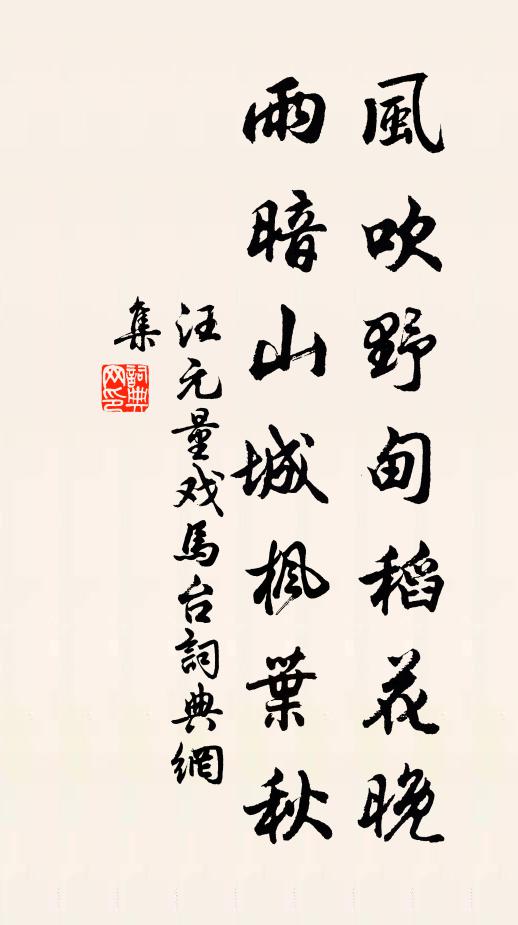 風吹野甸稻花晚
雨暗山城楓葉秋
汪元量戏馬台詞典網
集
詞典
网印